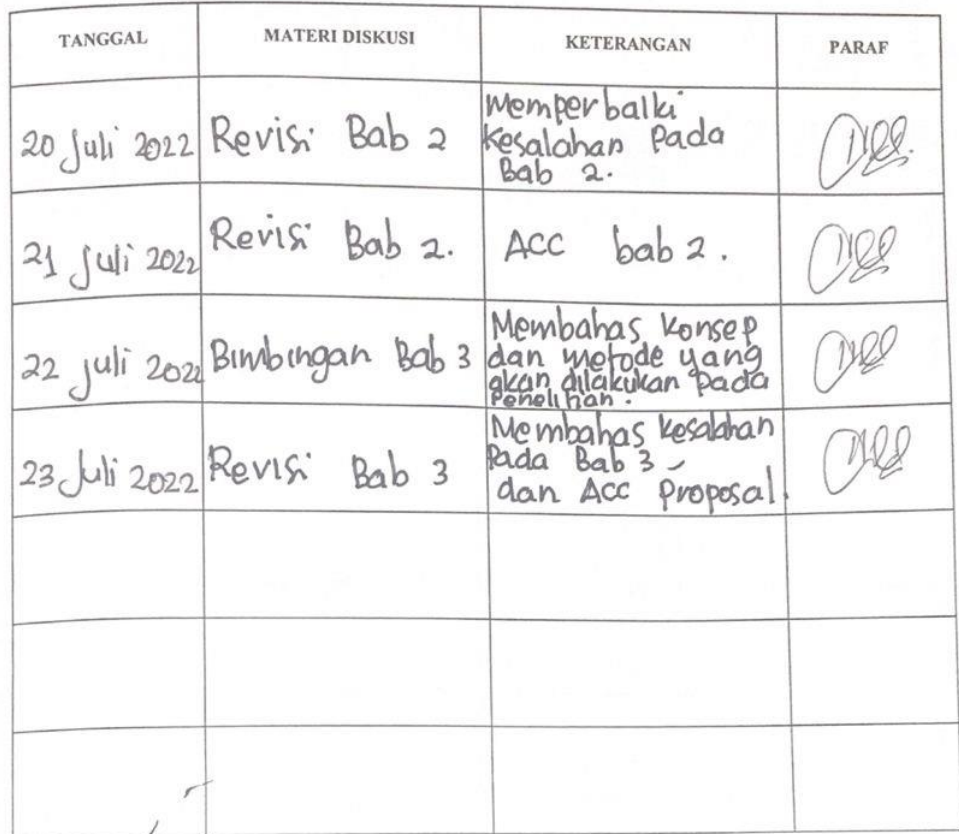 TANGGAL MATERI DISKUSI KETERANGAN PARAF
20 Juli 2022 Revisi Bab 2 Memperbaiki
Kesalahan Pada
Bab 2.
21 Juli 2022 Revisi Bab 2. ACC bab 2.
22 juli 2022 Bimbingan Bab 3 Membahas Konsep
dan metode yang
akan dilakukan pada
Penelitian.
23 Juli 2022 Revisi Bab 3 Membahas kesalahan
Pada Bab 3
dan Acc Proposal.